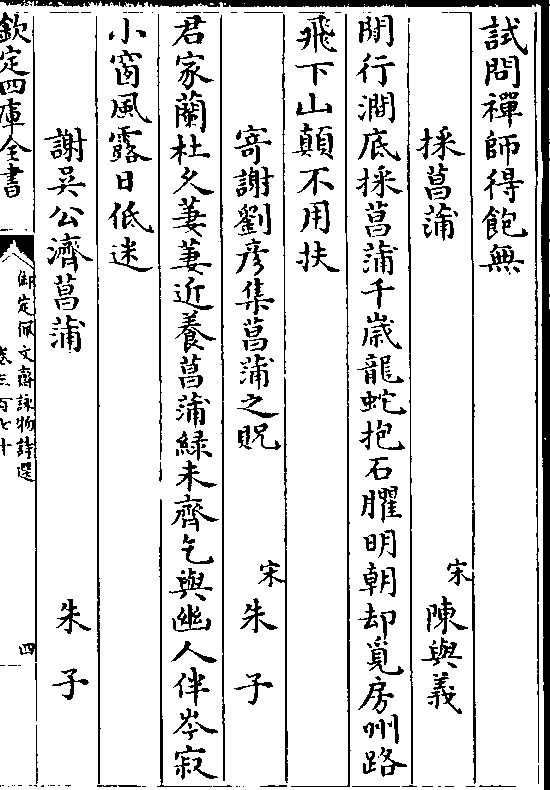 試問禪師得飽無
採菖蒲
宋 陳與義
閒行澗底採菖蒲千歲龍蛇抱石臞明朝却覓房州路
飛下山顛不用扶
寄謝劉彦集菖蒲之貺
宋 朱子
君家蘭杜久萋萋近養菖蒲緑未齊乞與幽人伴岑寂
小窗風露日低迷
謝吳公濟菖蒲
朱子
欽定四庫全書
御定佩文齋詠物詩選
卷三百七十
四